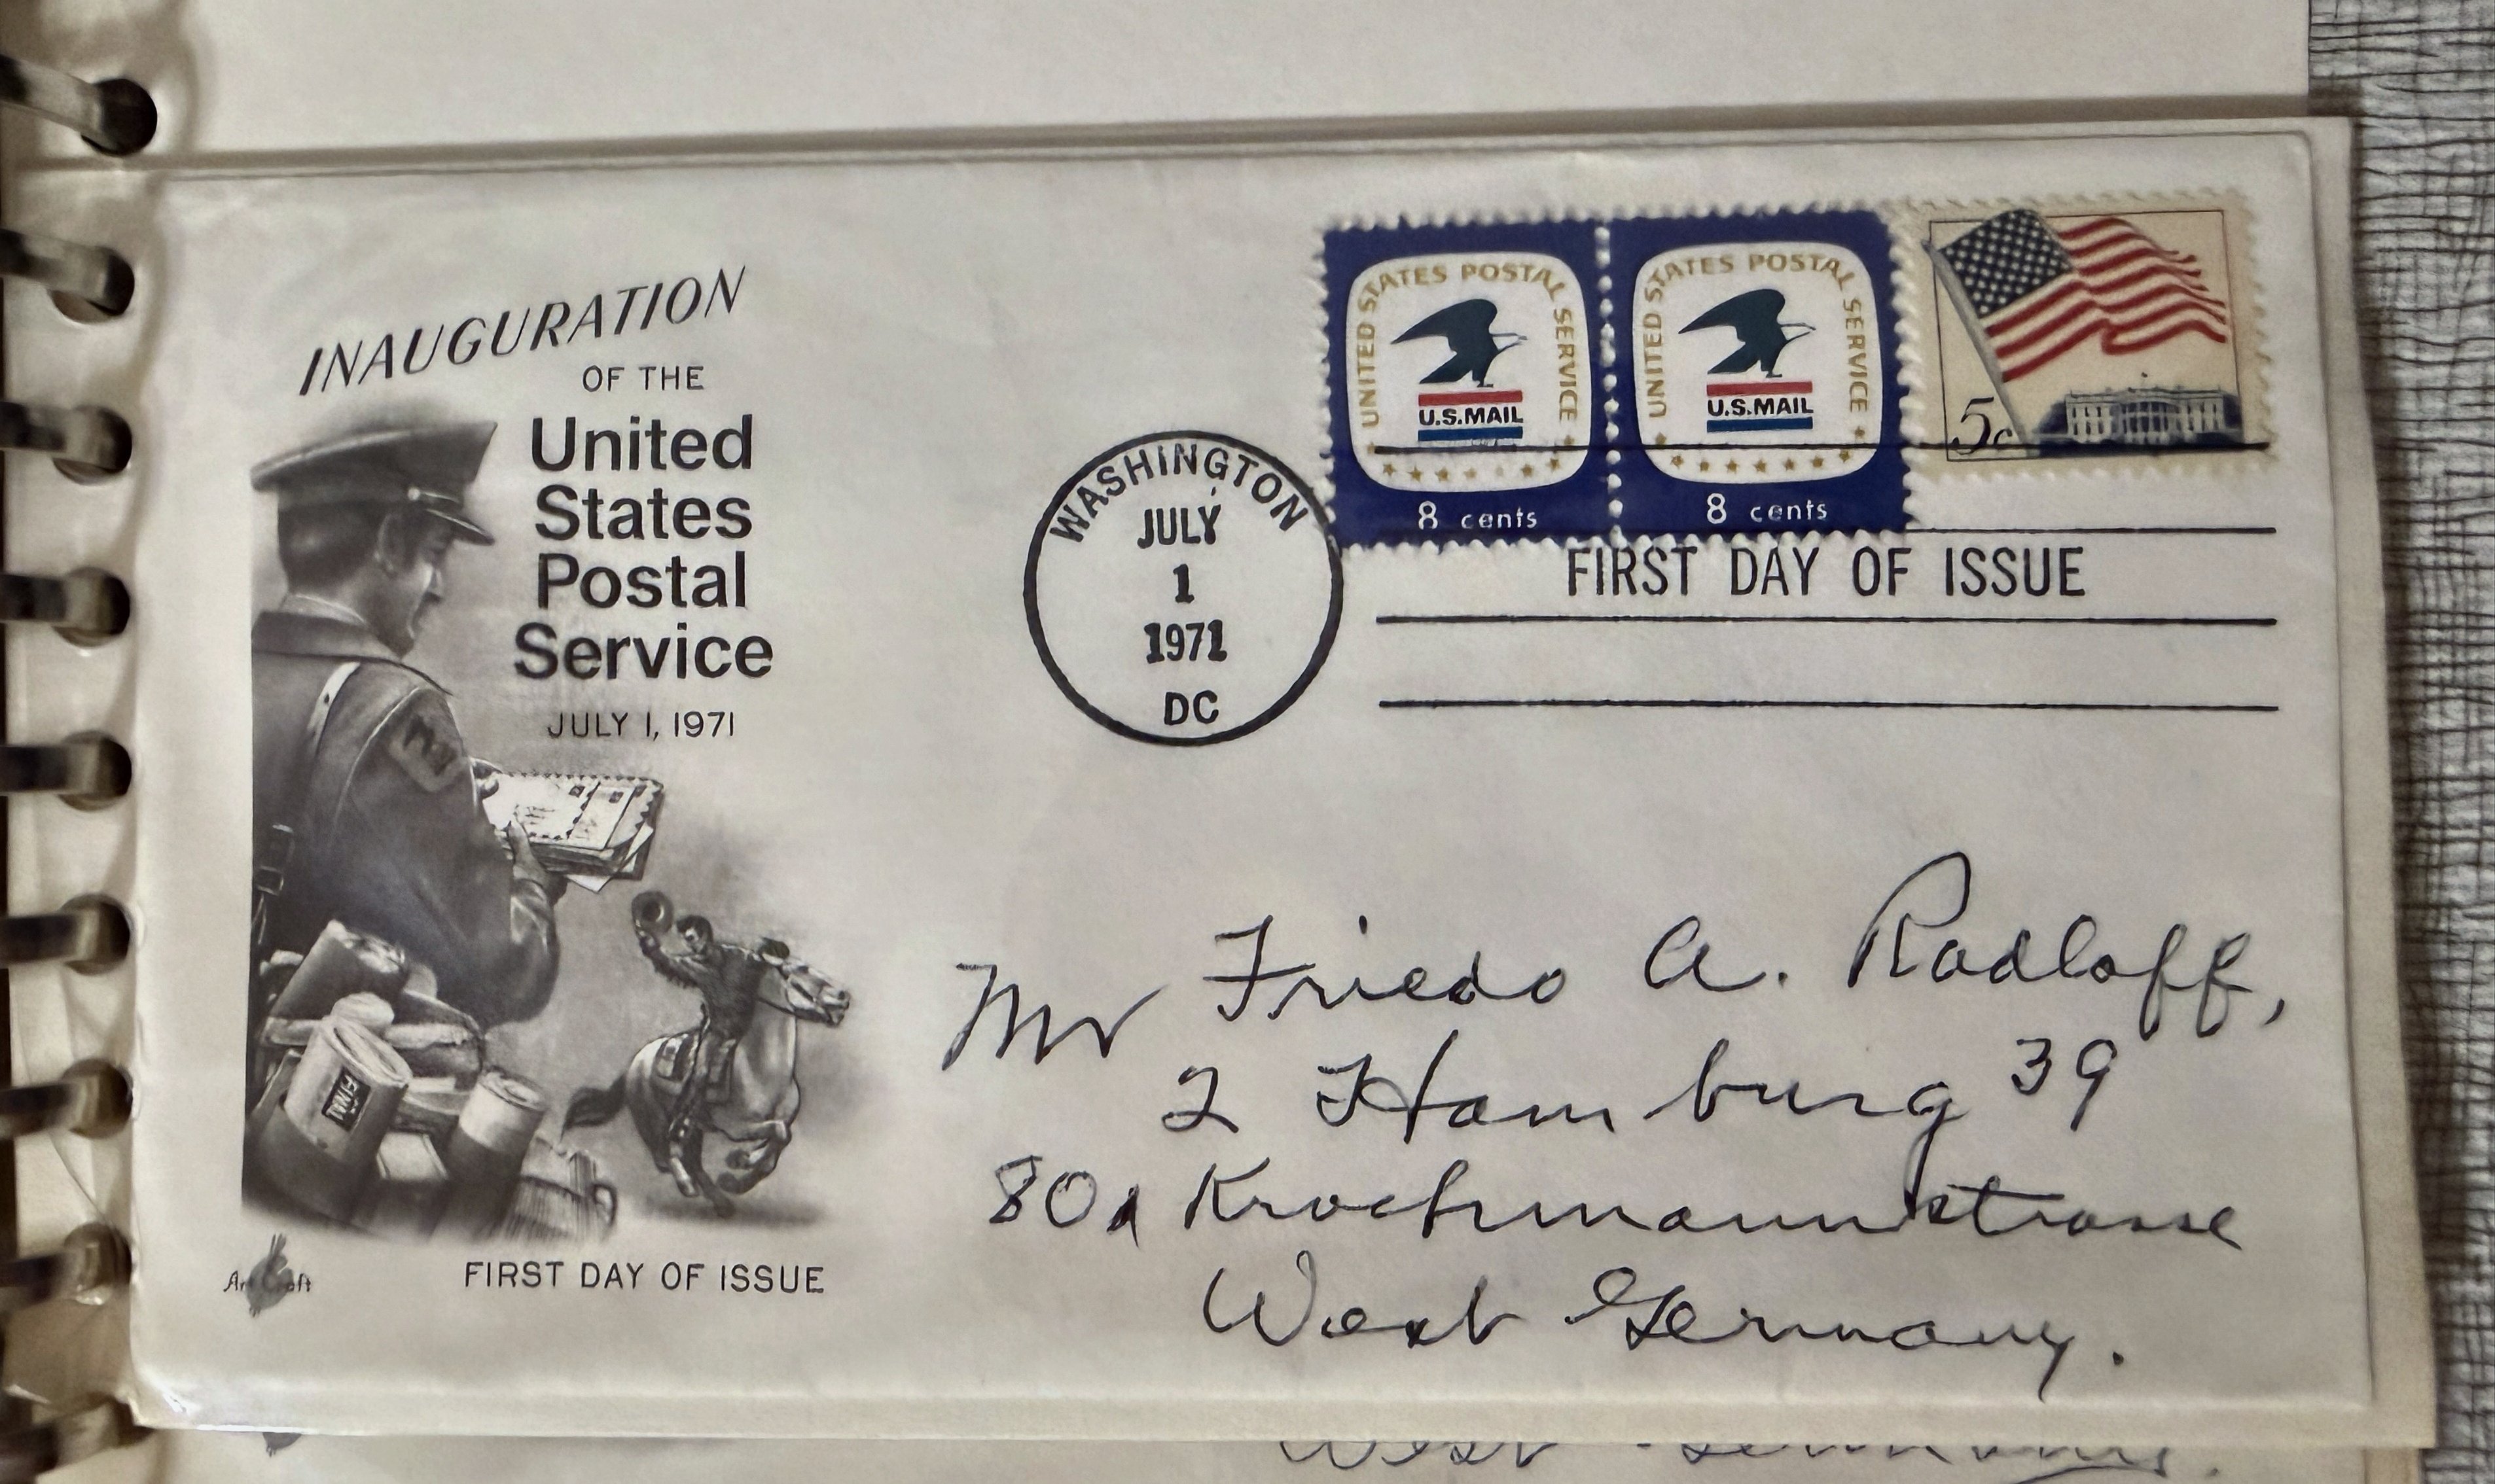 INAUGURATION
OF THE
United
States
Postal
Service
JULY 1, 1971
Art Craft
FIRST DAY OF ISSUE
UNITED STATES POSTAL SERVICE
U.S.MAIL
8 cents
UNITED STATES POSTAL SERVICE
U.S.MAIL
8 cents
5c
WASHINGTON
JULY
1
1971
DC
FIRST DAY OF ISSUE
Mr Friedo A. Radloff,
2 Hamburg 39
80a Krochmannstrasse
West Germany.
West Germany.